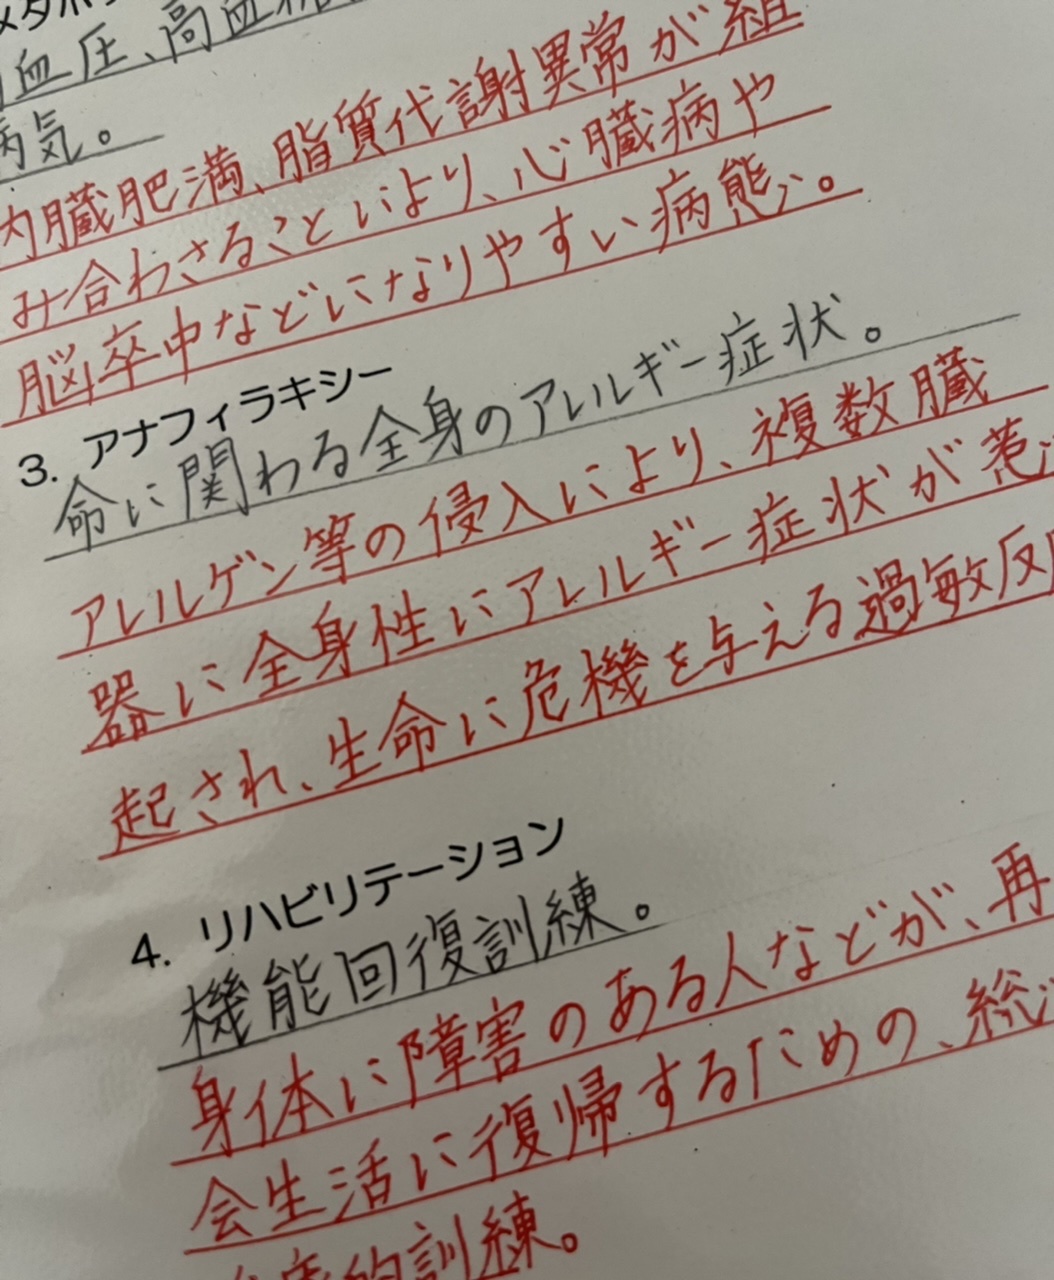 メタボ
血圧、高血糖
病気。
内臓肥満、脂質代謝異常が組
み合わさることにより、心臓病や
脳卒中などになりやすい病態。
3. アナフィラキシー
命に関わる全身のアレルギー症状。
アレルゲン等の侵入により、複数臓
器に全身性にアレルギー症状が惹
起され、生命に危機を与える過敏反
4. リハビリテーション
機能回復訓練。
身体に障害のある人などが、再
会生活に復帰するための、総
的訓練。